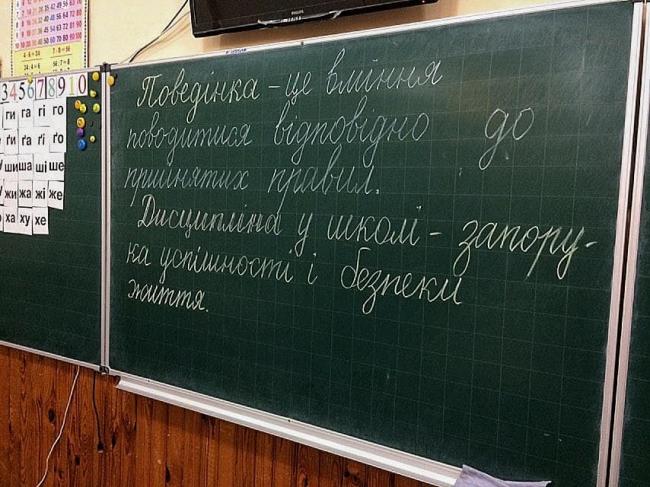 PHILIPS
3 4 5 6 7 8 9 10
ги га гі го
ґи ґа ґі ґо
ши ша ші ше
жи жа жі же
ха ху хе
Поведінка – це вміння
поводитися відповідно до
прийнятих правил.
Дисципліна у школі – запору-
ка успішності і безпеки
життя.